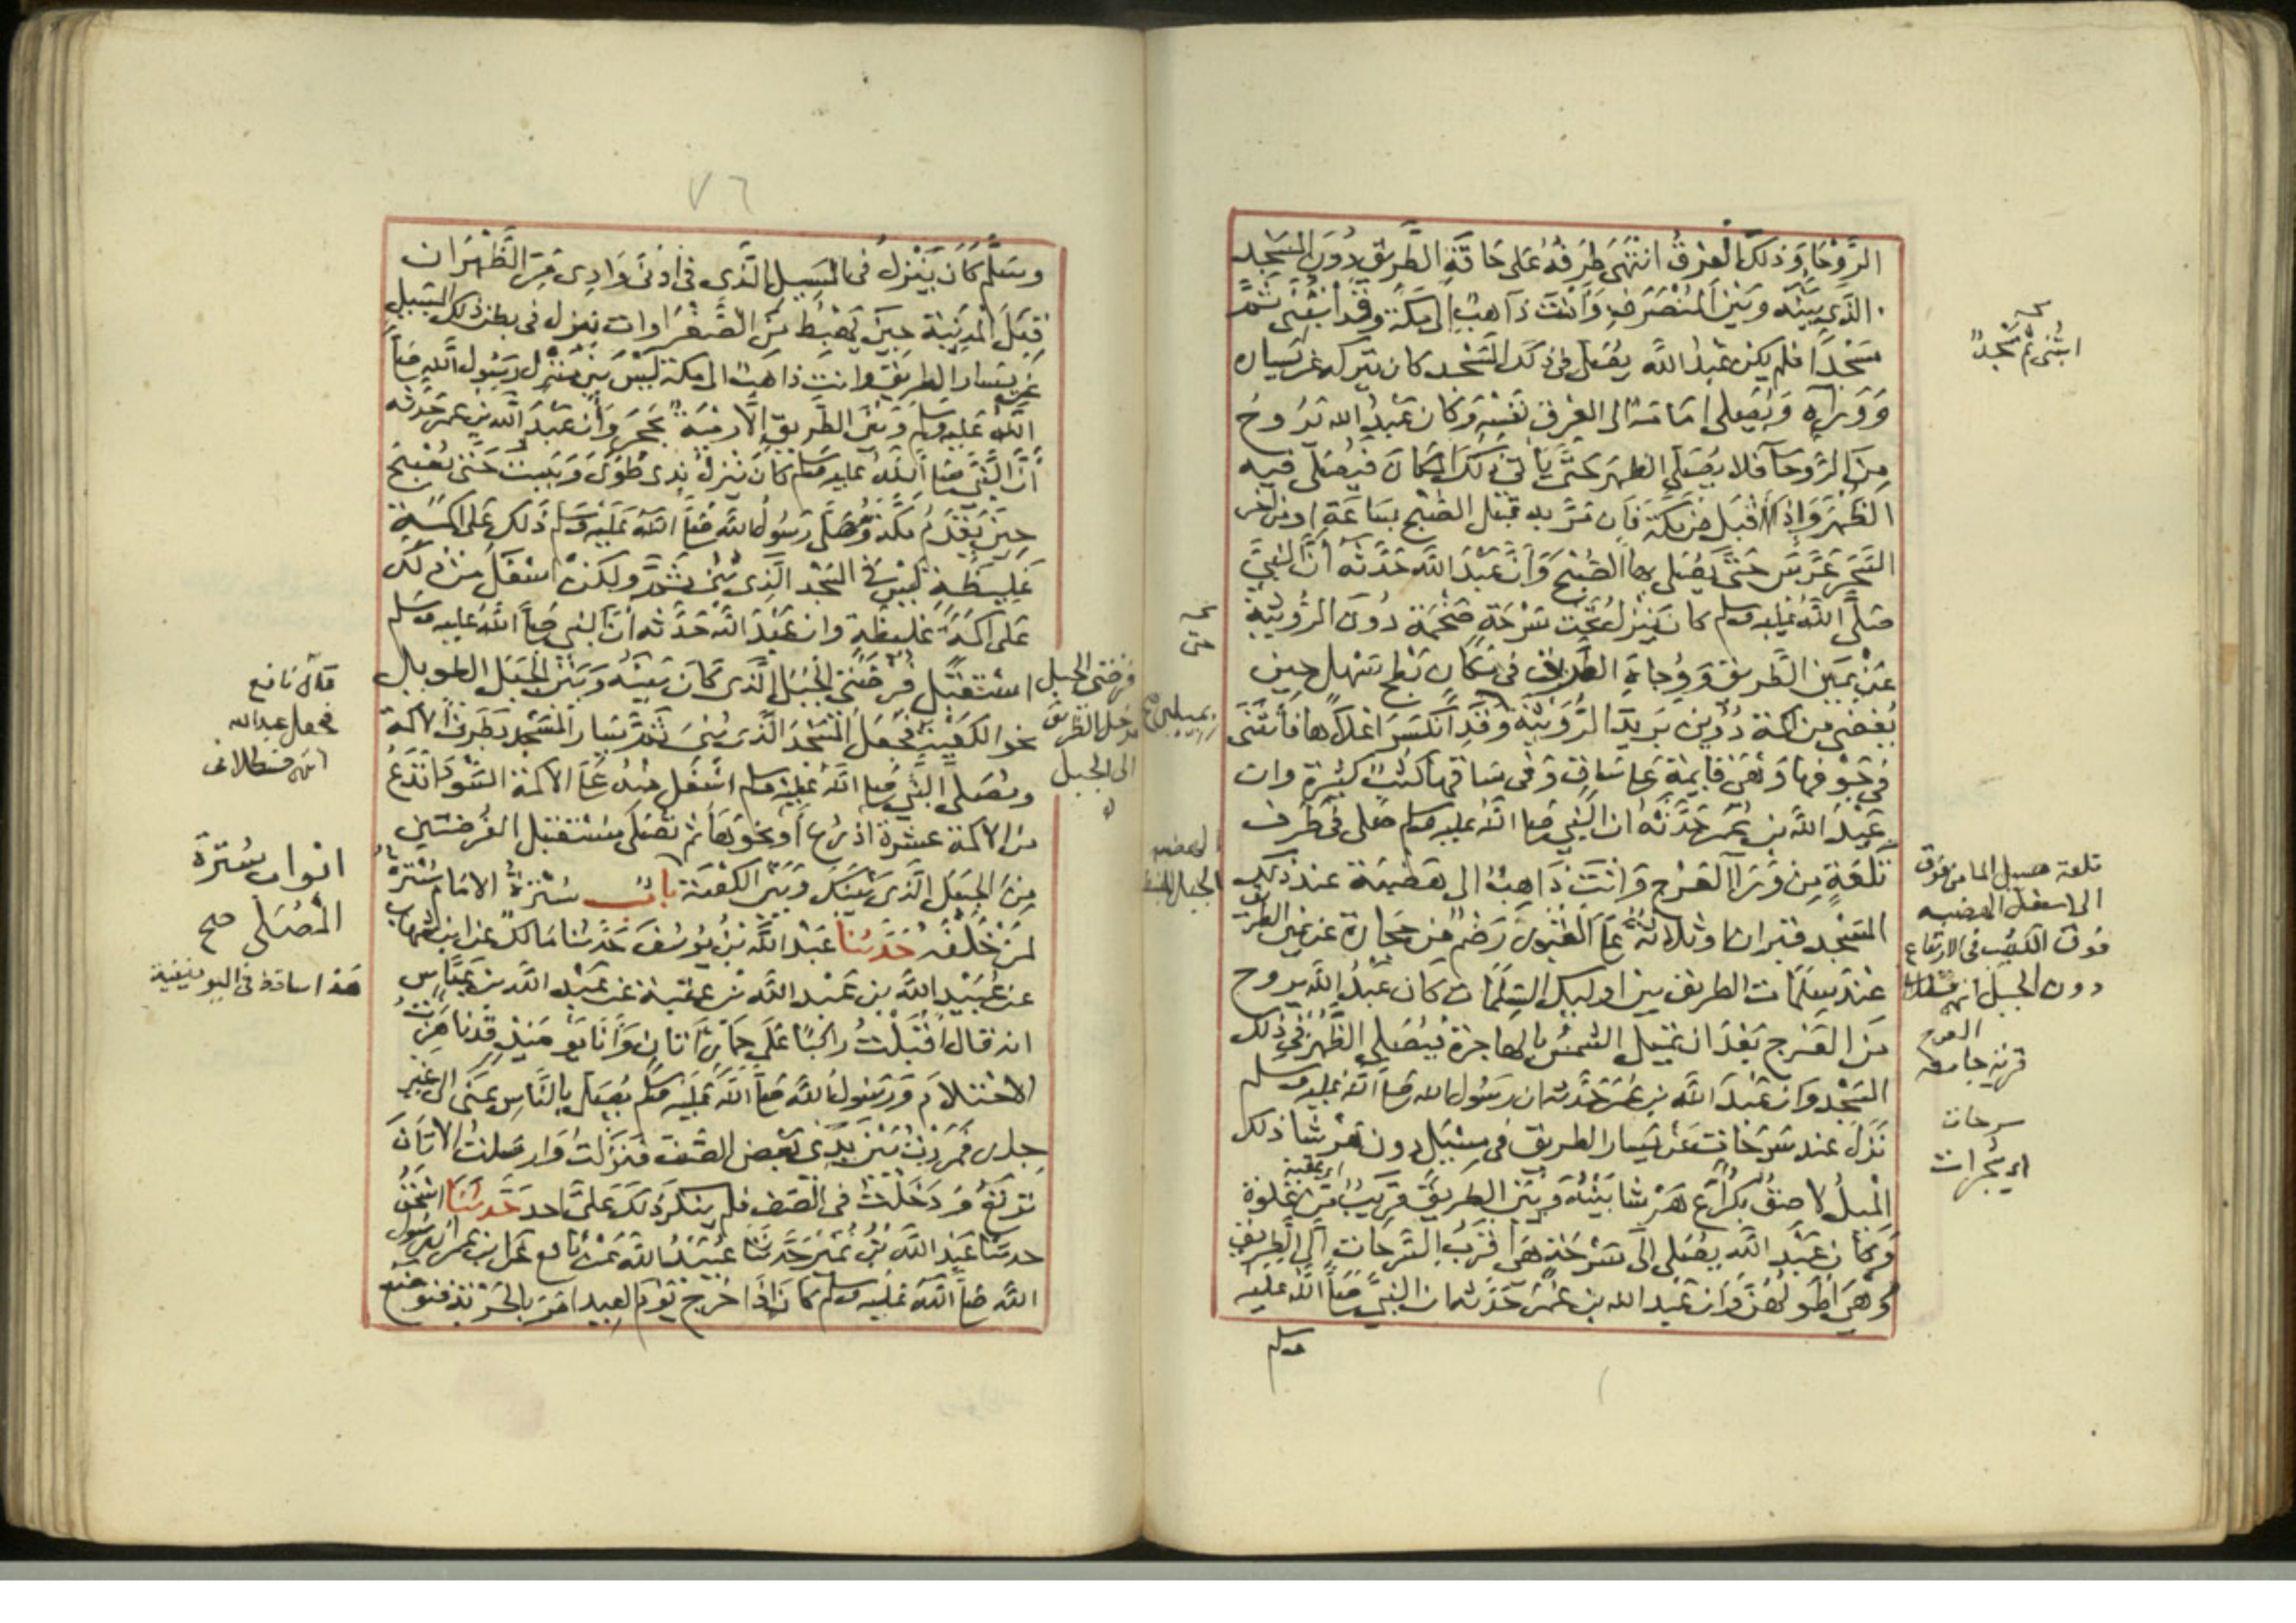 الرَّوْحَا وَذلكَ العِرْقُ انتَهَى طَرَفُهُ عَلى حَافَّةِ الطَّرِيق دُونَ المَسْجِد
الذى بَيْنَه وبَيْنَ المُنْصَرَفِ وَأَنْتَ ذاهِبٌ الى مكة وقد ابْتُنِى ثَمَّ
مَسْجدًا فلم يكن عَبْدُ اللَّه يصُلى فى ذلكَ المَسْجد كان يتركه عن يَسَاره
وَوَرَاءَه وَيُصَلى امَامَهُ الى العِرق نَفْسِه وَكان عَبْدُ الله يَرُوحُ
مِنَ الرَّوحَا فلا يُصَلّى الظهرَ حَتَّى يَأتى ذلكَ المَكانَ فَيُصَلى فيه
الظُهْرَ وَاذا اقْبَل من مكّة فَان مَرَّ به قبْل الصّبْح بسَاعَةٍ او من اخر
السَّحَرِ عَرَّسَ حَتَّى يُصَلى بها الصُّبْح وَأنَّ عَبْدَ اللَّه حَدَّثه أنّ النبيَّ
صَلَّى اللَّهُ عَليْهِ وسلم كان يَنْزِلُ تَحْتَ سَرْحَةٍ ضَخْمَة دُونَ الرُّوَيْثَةِ
عَنْ يَمِيْنِ الطَّريق وَوِجَاهَ الطَّريق فى مَكانٍ بَطْحٍ سَهْل حِينَ
يُفضِى من اكمة دُوَيْن بَريدِ الرُّوَيْثَة وقَدِ انكَسَرَ اعْلاهَا فَانْثَنَى
فى جَوْفِهَا وَهْىَ قَايِمَةٌ عَلى سَاقٍ وَفى سَاقِهَا كُثُبٌ كَثِيرة وان
عَبْدَ اللَّه بن عُمَر حَدّثَهُ ان النّبي صَلى اللَّهُ عليه وسلم صَلى فى طَرَف
تَلْعَةٍ مِن وَرَاءِ العَرْجِ وَانْتَ ذَاهِبٌ الى هَضْبَة عند ذلك
المَسْجِد قبران او ثلاثة عَلى القُبُور رَضْمٌ من حِجَارَة عَن يَمين الطريق
عِنْدَ سَلَمَات الطريق بين اوليك السَّلَمَات كان عَبْدُ اللَّه يروح
مِنَ العَرْج بَعْدَ ان تميل الشمْسُ بِالهاجرَة فيُصَلى الظّهْر فى ذلك
المسْجِد وان عَبْدَ اللَّه بن عُمَرَ حَدَّثه ان رَسُول الله صَلى اللَّهُ عليه وسلم
نَزَلَ عند سَرَحَاتٍ عَنْ يَسَار الطريق فى مسِيْل دون هَرْشا ذلك
المَسِيلُ لاصِقٌ بكُراعِ هَرْشا بَيْنَهُ وَبَيْنَ الطريق قريبٌ مِن غَلوَة
وَكان عَبْدُ اللَّه يصُلى الى سَرْحَةٍ هِىَ اقرَبُ السَّرَحَاتِ الى الطريق
وَهىَ أطوَلهُنَّ وَان عَبْد الله بن عُمَرَ حَدَّثه ان النّبيَّ صَلى اللَّهُ عليه
وسلم
ابتُنى ثم مسْجدٌ
تلعة مسيل الما من فوق
الى اسفل الهضبه
فوق الكثيب فى الارتفاع
دون الجبل انتهى قسطلانى
العرج
قرية جامعة
سرحات
اى شجرات
اى عقبة
٧٦
وسَلَّم كَان يَنْزلُ فى المسِيل الّذى فى ادْنَى وَادِى مَرِّ الظَّهْرَان
قِبَلَ المدينَة حِينَ يَهْبط مِنَ الصَّفْرَاوات يَنزل فى بطن ذلك المسِيل
عَن يسَار الطريق وانتَ ذاهبٌ الى مكة ليْسَ بَين مَنزل رَسُول اللَّه صَلى
اللَّهُ عَليه وسلم وَبَيْنَ الطَّريق إلّا رميَةٌ بحَجَر وَأن عَبْدَ اللَّه بن عمر حَدَّثه
أنّ النّبيَّ صَلى اللَّهُ عليه وسلم كان يَنزلُ بذى طُوًى وَيَبيتُ حَتّى يُصْبحَ
حِينَ يَقْدَمُ مَكّة وَمُصَلّى رَسُول اللَّه صَلى اللَّه عَليْه وسَلم ذَلك عَلى اكمَةٍ
غَلِيظَةٍ ليْسَ فى المسْجد الّذِى بُنِىَ ثَمَّ ولكِنْ اسْفَلَ مِنْ ذلك
عَلى اكمَةٍ غليظَةٍ وان عَبْدَ اللَّه حَدَّثه انّ النبى صَلى اللَّهُ عليه وسَلم
اسْتَقْبَل فُرْضَتَىِ الجَبَل الّذِى كَان بَيْنَهُ وَبَيْنَ الجَبَل الطويل
نحو الكعْبَةِ فَجَعَلَ المَسْجِدَ الَّذِى بُنِىَ ثَمَّ يَسَار المَسْجِدِ بطَرَفِ الاكمة
ومُصَلى النَّبِّي صَلى اللَّهُ عَليْه وسلم اسْفَل مِنْهُ عَلَى الاكمَة السَّوْدَاءِ تَدَعُ
من الاكمة عشرة اذرُعٍ أو نحْوَهَا ثم تُصَلى مُسْتقبل الفُرْضتَين
مِنَ الجبَل الَّذِى بَيْنَكَ وَبَيْنَ الكَعْبَة باب سُترَةُ الامَام سُتْرَةُ
مَنْ خَلْفَهُ حَدَّثنَا عَبْد اللَّه بْنُ يُوسُفَ حَدَّثنا مَالكٌ عن ابن شهاب
عن عُبَيْدِ اللَّه بن عَبْد اللَّه بن عُتبة عن عَبْد اللَّه بن عَبَّاسٍ
انه قال اقْبَلتُ راكِبًا عَلَى حِمَارٍ اتَان وَأنَا يَومَئِذٍ قَدْ نَاهَزْتُ
الاحْتلامَ وَرَسُولُ اللَّه صَلى اللَّه عَليْه وسَلم يُصَلى بالنَّاسِ بمِنًى الى غَيْر
جِدارٍ فَمَرَرْتُ بَيْنَ يَدَى بَعْضِ الصّفّ فنَزَلتُ وَارسَلتُ الاتَانَ
تَرْتَعُ وَدَخَلْتُ فى الصّفّ فلم ينكر ذلكَ عَلىَّ احد حَدَّثنَا اسْحٰقُ
حدثنَا عَبْدُ اللَّه بْنُ نُمَيْرٍ حَدَّثنَا عُبَيْدُ اللَّه عَنْ نَافع عَن ابن عمر ان رَسُول
اللَّه صَلى اللَّهُ عَليْه وسلم كان إذَا خَرَج يَوْمَ العِيد امَرَ بالحَرْبَةِ فتوضَعُ
فرضتى الجبل
مدخل الطريق
الى الجبل
قال نافع
فجعل عبد الله
انتهى قسطلانى
ابواب سُترَةِ
المُصَلى صح
هَذا ساقط فى اليونينية